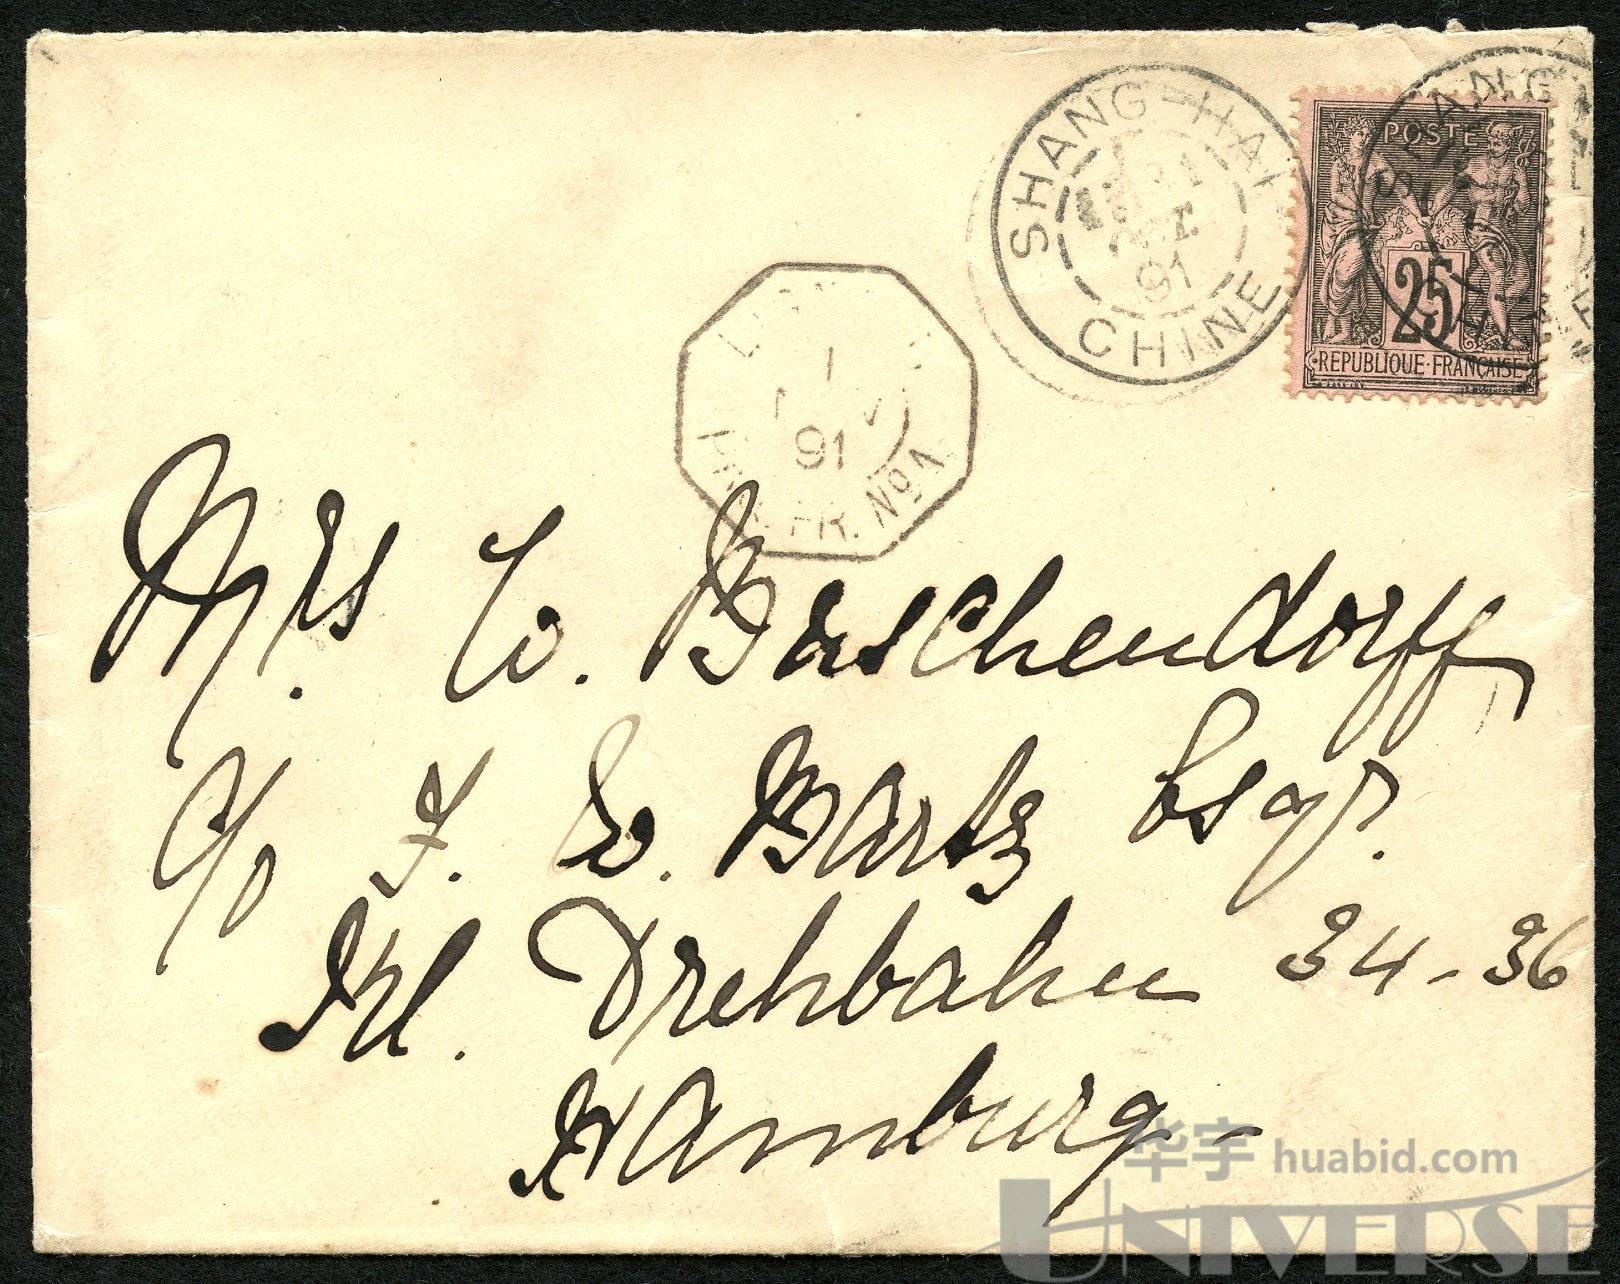 SHANG-HAI
91
CHINE
POSTE
25
REPUBLIQUE·FRANÇAISE
1
91
FR. No 1
Mrs. W. Baschendorff
c/o F. W. Bartz Esqr.
Kl. Drehbahn 34-36
Hamburg-
华宇 huabid.com
UNIVERSE